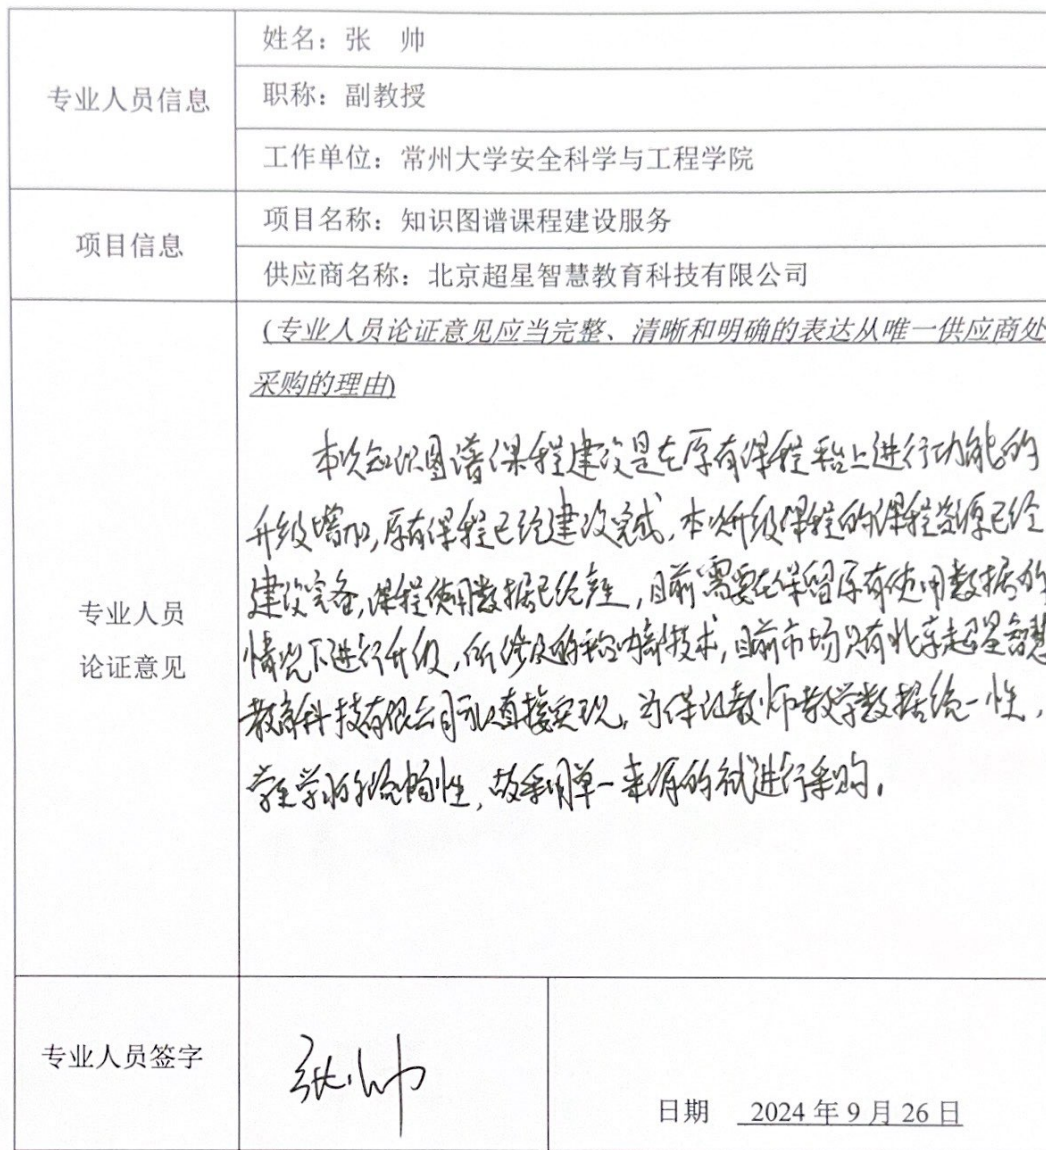 专业人员信息
姓名：张 帅
职称：副教授
工作单位：常州大学安全科学与工程学院
项目信息
项目名称：知识图谱课程建设服务
供应商名称：北京超星智慧教育科技有限公司
专业人员
论证意见
(专业人员论证意见应当完整、清晰和明确的表达从唯一供应商处
采购的理由)
本次知识图谱课程建设是在原有课程平台上进行功能的
升级增加,原有课程已经建设完成,本次升级课程的课程资源已经
建设完备,课程使用数据已经,目前需要在保留原有使用数据的
情况下进行升级,所涉及的技术,目前市场只有北京超星智慧
教育科技有限公司可以直接实现。为保证教师教学数据统一性,
学生学习流畅性,故采用单一来源的方式进行采购。
专业人员签字
张帅
日期 2024 年 9 月 26 日